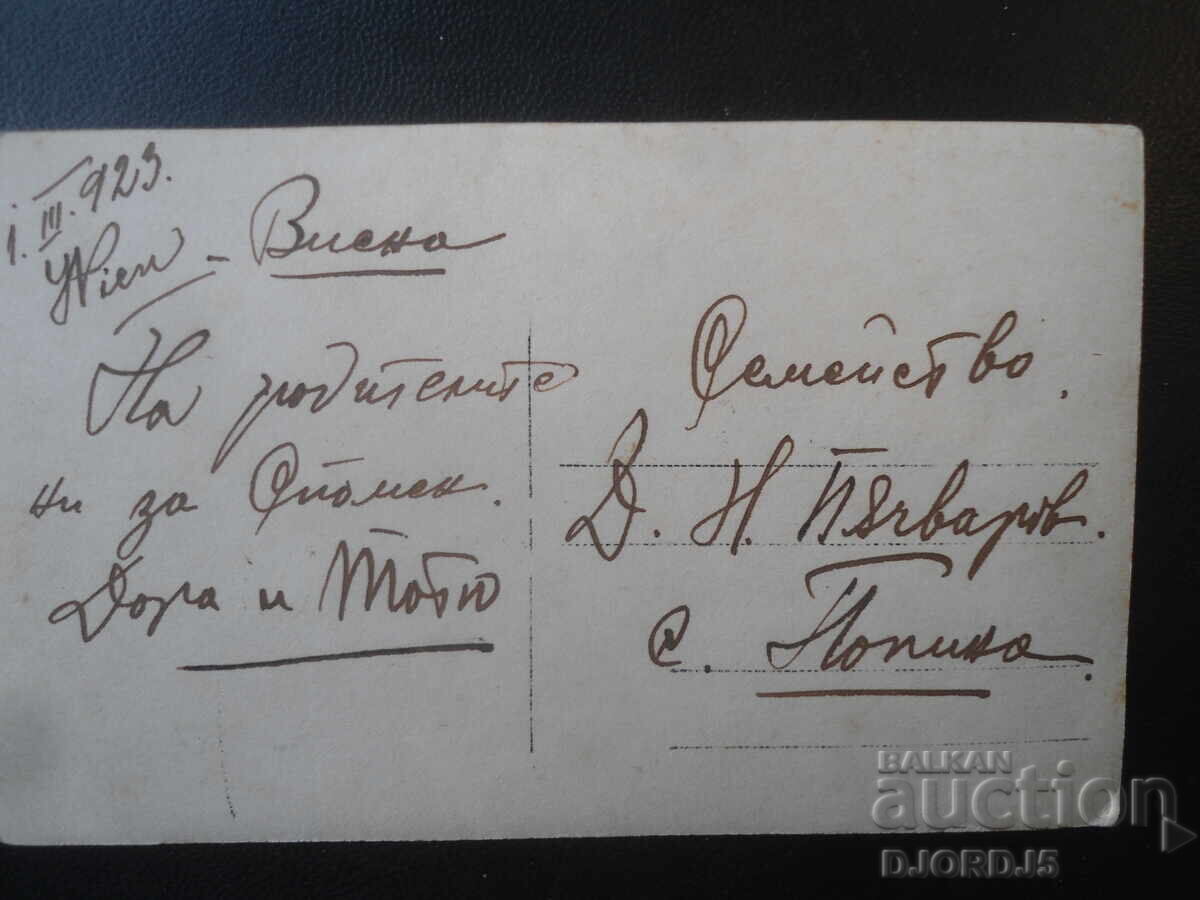 1. III. 923.
Wien - Виена
На родителите
ни за Спомен.
Дора и Тотю
Семейство
Д. Н. Пъчваров.
с. Попина.
BALKAN
auction
DJORDJ5